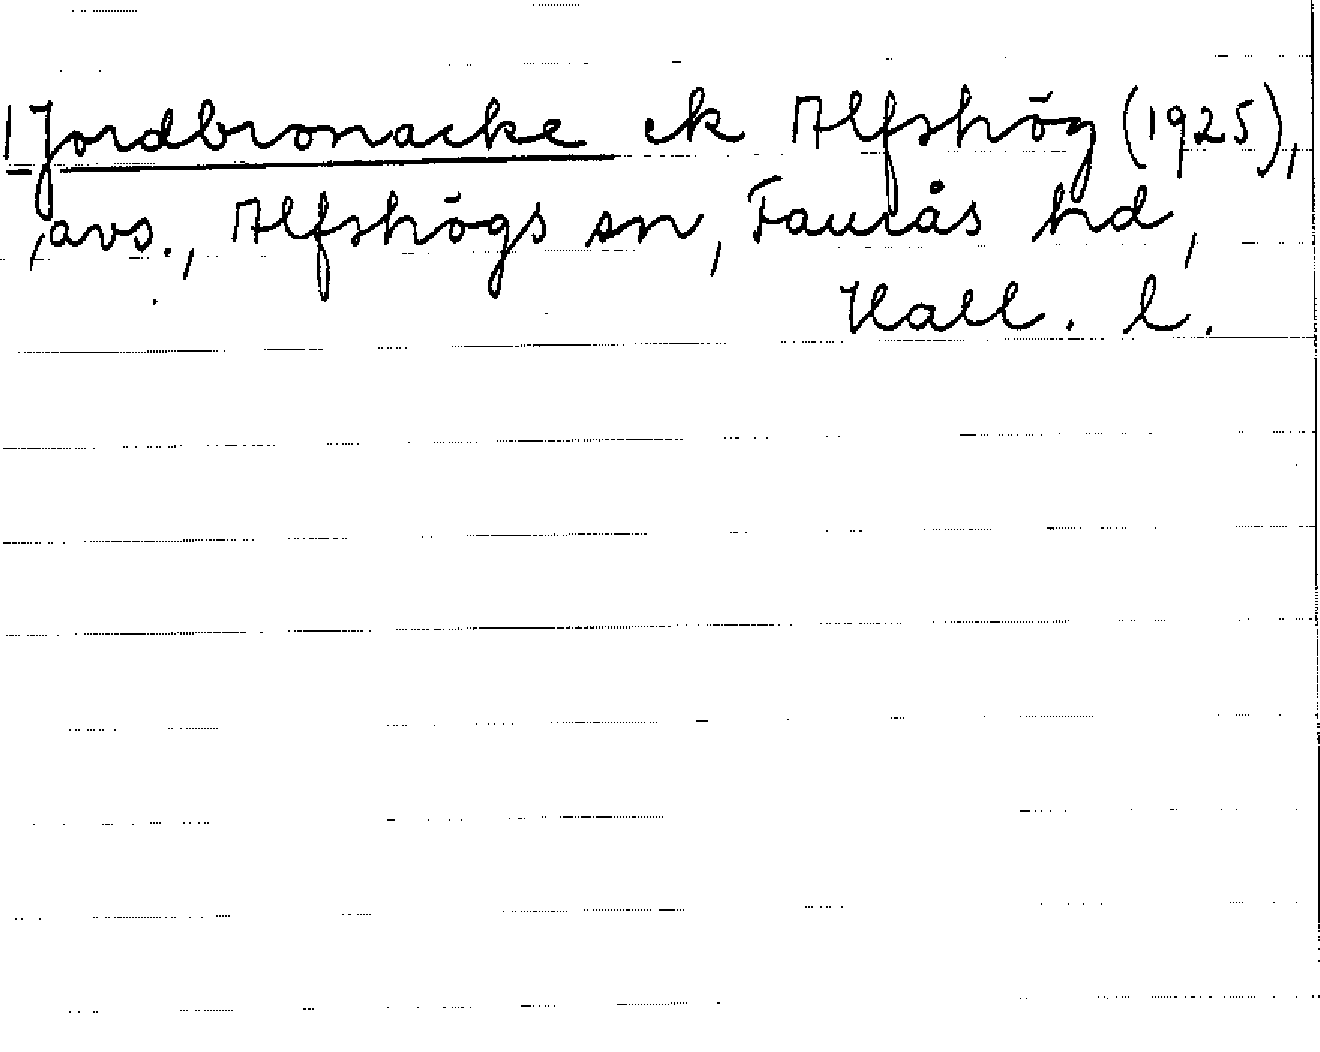 1 Jordbronacke ek Alfshög (1925),
avs., Alfshögs sn, Faurås hd,
Hall. l.